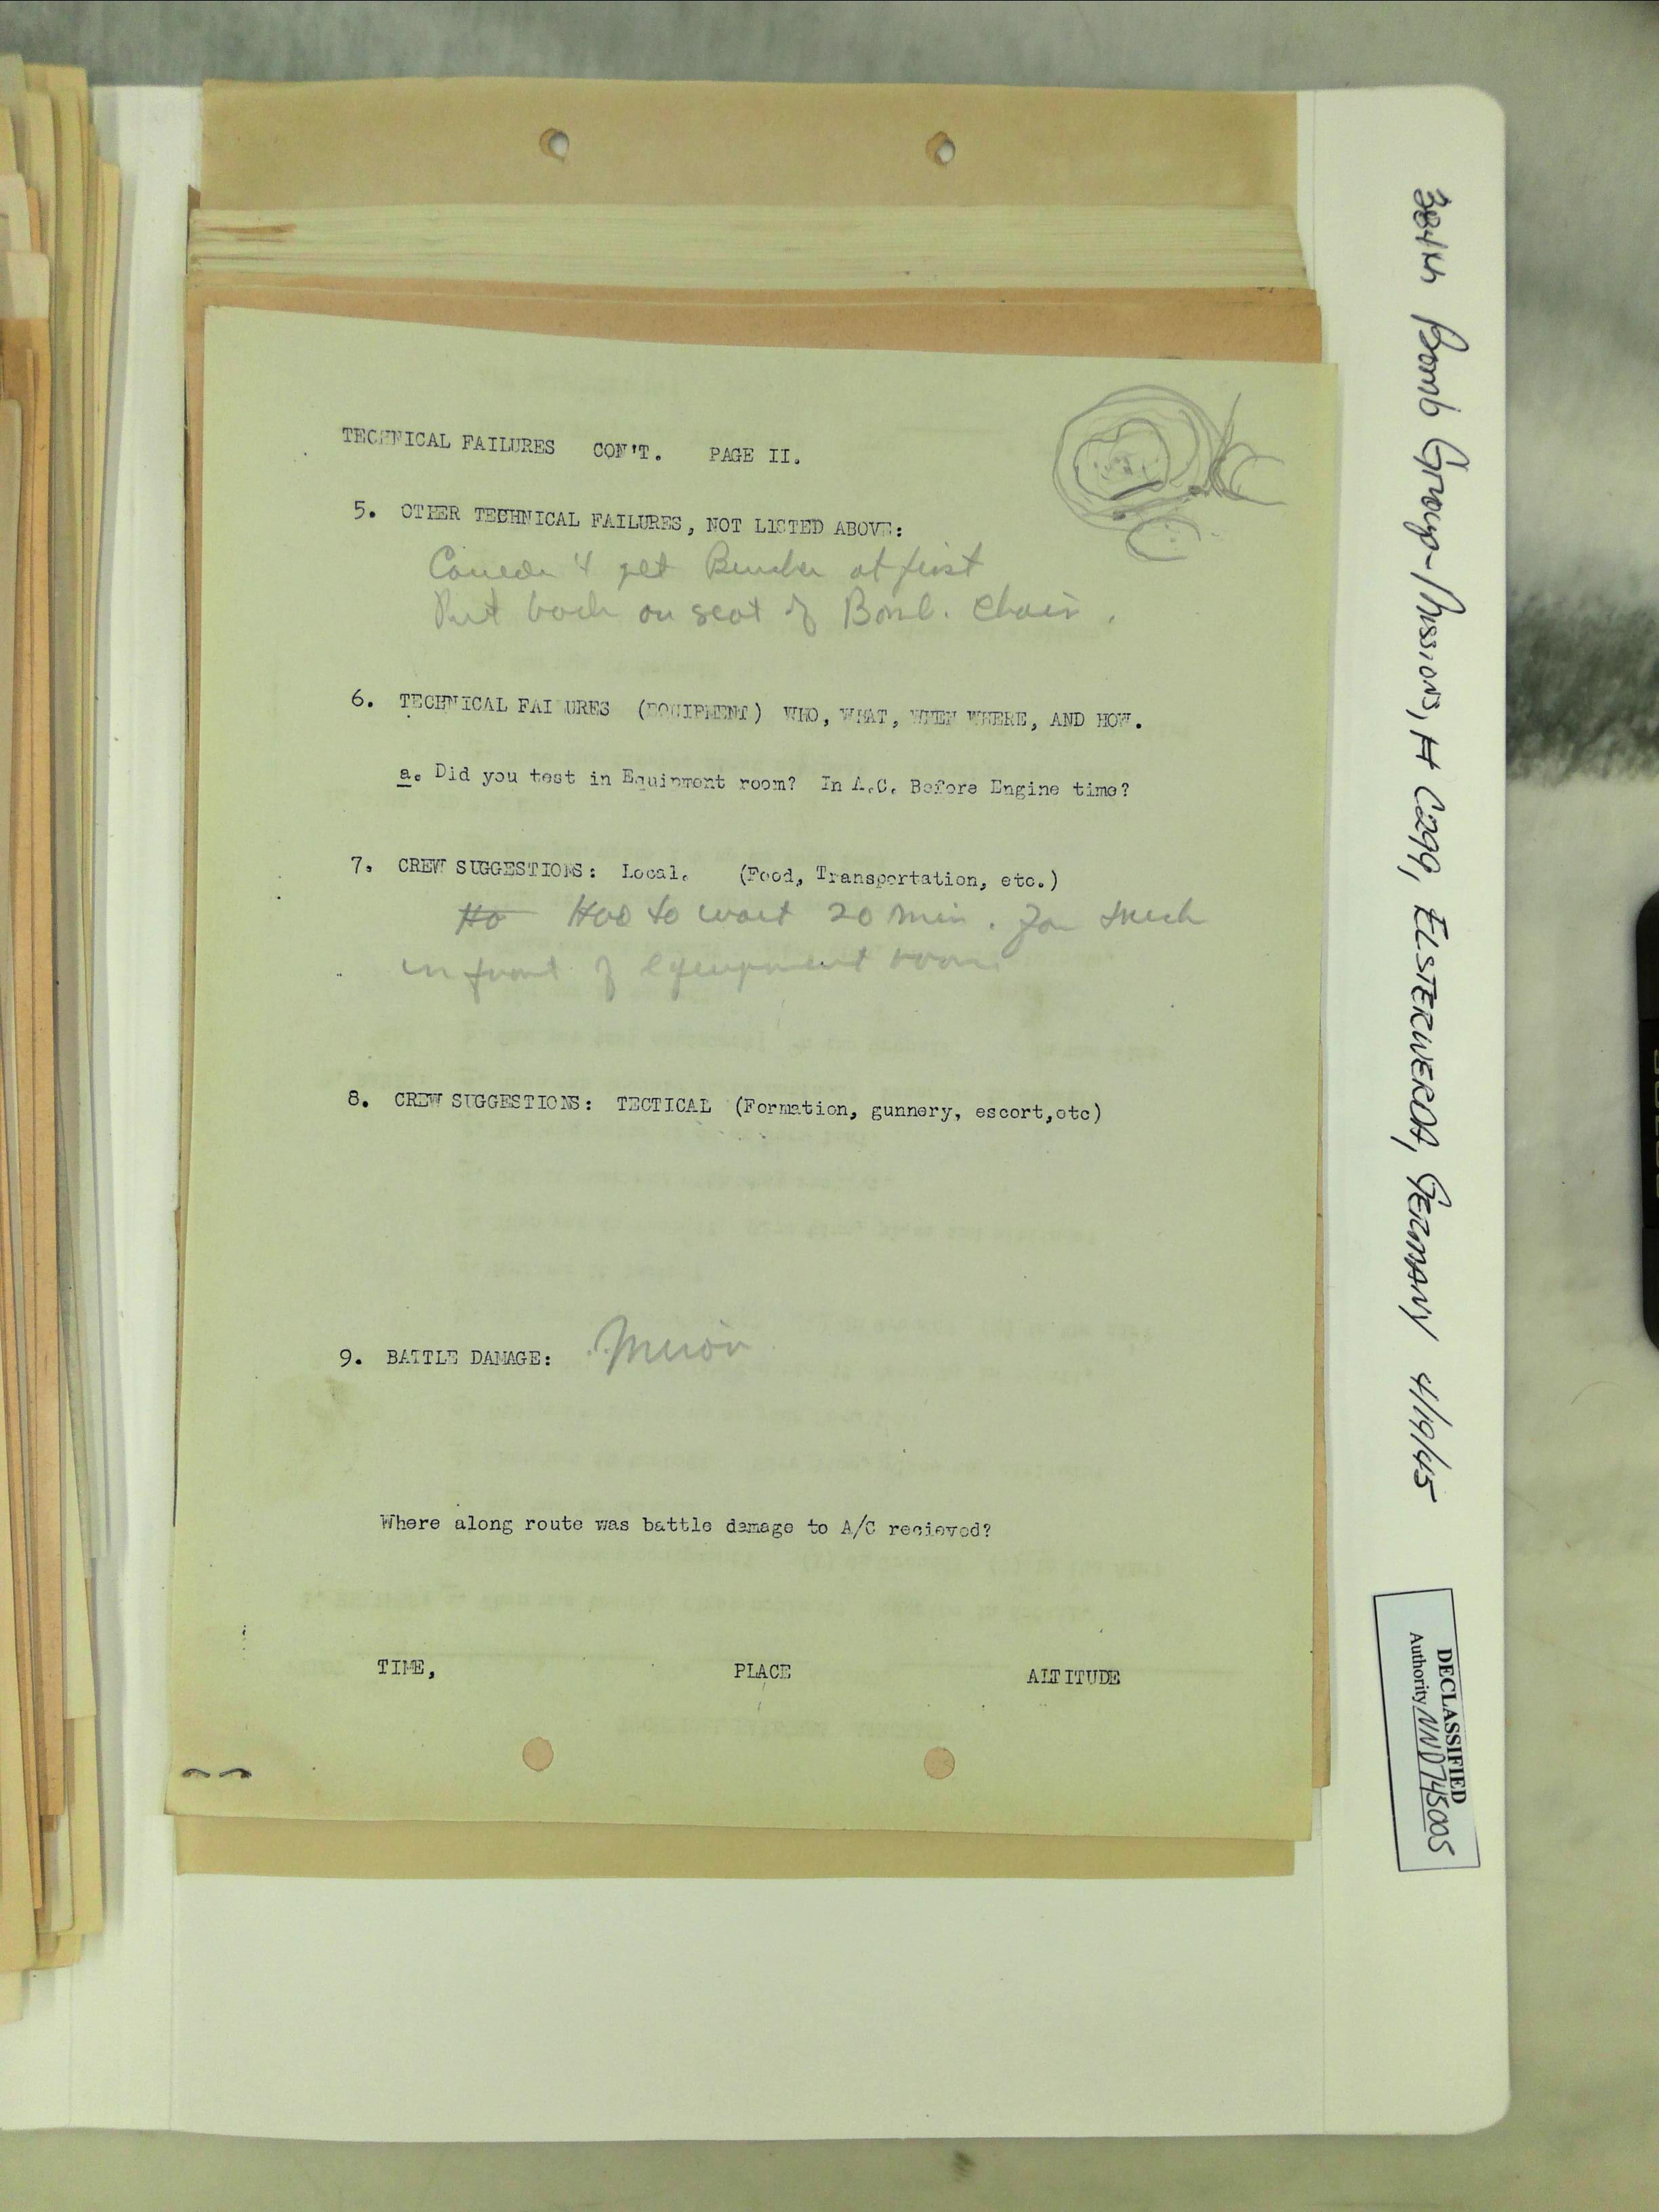 TECHNICAL FAILURES CON'T. PAGE II.
5. OTHER TECHNICAL FAILURES, NOT LISTED ABOVE:
get at first
Put back on seat of Bomb. Chair.
6. TECHNICAL FAILURES (EQUIPMENT) WHO, WHAT, WHEN WHERE, AND HOW.
a. Did you test in Equipment room? In A.C. Before Engine time?
7. CREW SUGGESTIONS: Local. (Food, Transportation, etc.)
Ho Had to wait 20 min. for truck
in front of equipment room.
8. CREW SUGGESTIONS: TECTICAL (Formation, gunnery, escort,etc)
9. BATTLE DAMAGE: Minor
Where along route was battle damage to A/C recieved?
TIME, PLACE ALTITUDE
384th Bomb Group-Mission, # C299, ELSTERWERDA, GERMANY 4/19/45
DECLASSIFIED
Authority NND745005